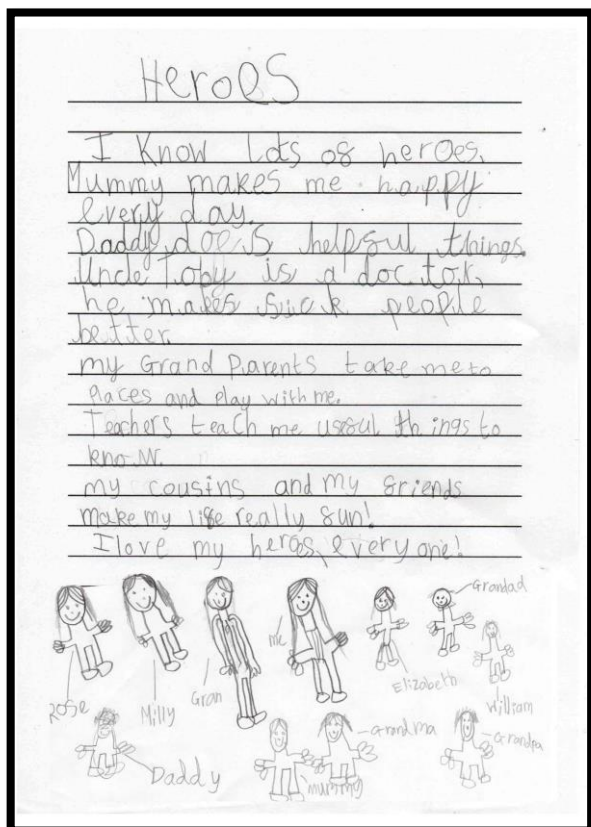 Heroes
I Know lots of heroes,
Mummy makes me happy
every day.
Daddy does helpful things.
Uncle Toby is a doctor,
he makes sick people
better.
my Grand Parents take me to
Places and play with me.
Teachers teach me useful things to
know.
my cousins and my friends
make my life really fun!
I love my heros, every one!
Grandad
me
Elizabeth
William
Rose
Milly
Gran
Daddy
mummy
Grandma
Grandpa